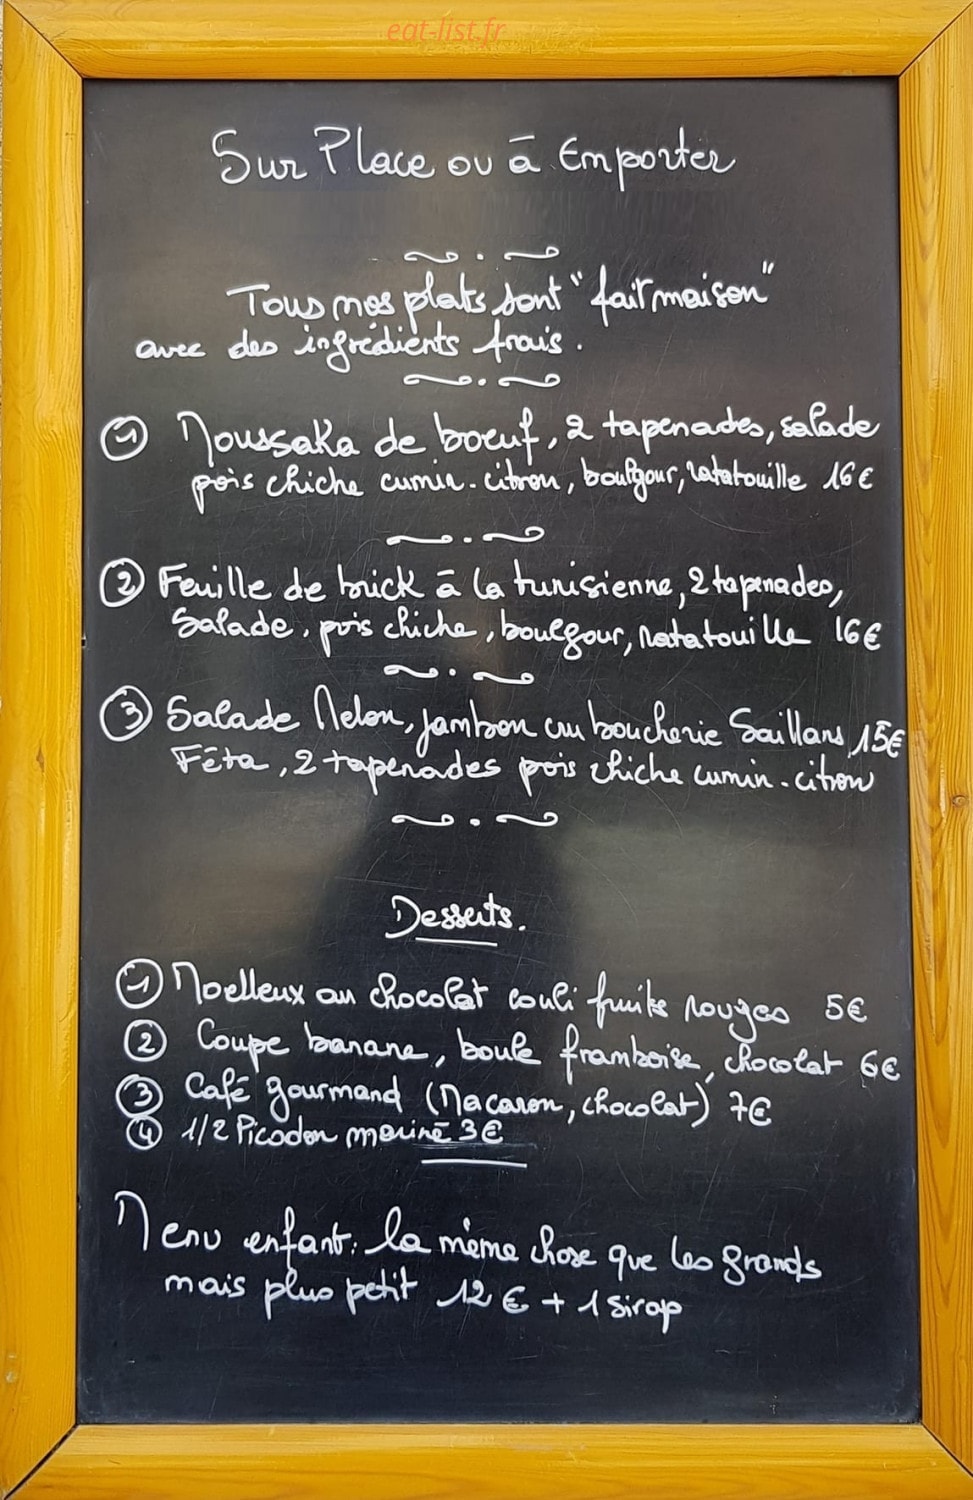 eat-list.fr
Sur Place ou à Emporter
Tous nos plats sont "fait maison"
avec des ingrédients frais.
1 Moussaka de boeuf, 2 tapenades, salade
pois chiche cumin-citron, boulgour, ratatouille 16€
2 Feuille de brick à la tunisienne, 2 tapenades,
Salade, pois chiche, boulgour, ratatouille 16€
3 Salade Melon, jambon cru boucherie Saillans 15€
Féta, 2 tapenades pois chiche cumin-citron
Desserts.
1 Moelleux au chocolat couli fruits rouges 5€
2 Coupe banane, boule framboise, chocolat 6€
3 Café gourmand (Macaron, chocolat) 7€
4 1/2 Picodon mariné 3€
Menu enfant: la même chose que les grands
mais plus petit 12€ + 1 sirop